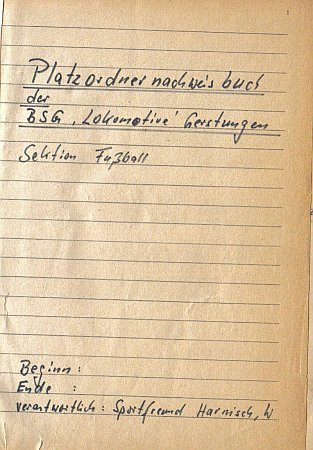 Platzordnernachweisbuch
der
BSG "Lokomotive" Gerstungen
Sektion Fußball
Beginn:
Ende :
verantwortlich: Sportfreund Harnisch, W